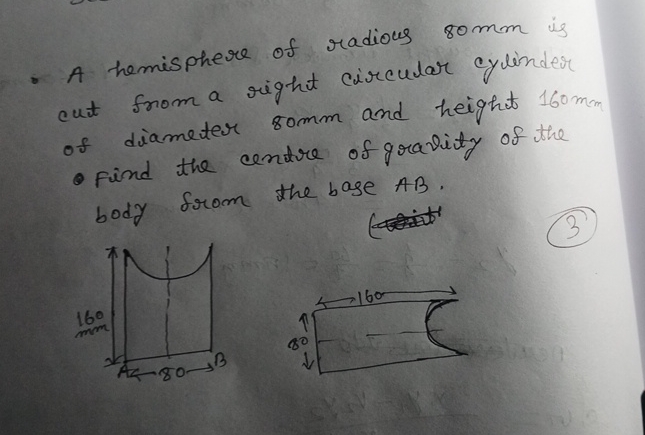 A hemisphere of radious 80mm is
cut from a right circular cylinder
of diameter 80mm and height 160mm
Find the centre of gravity of the
body from the base AB.
3
160
160
mm
80
A 80 B